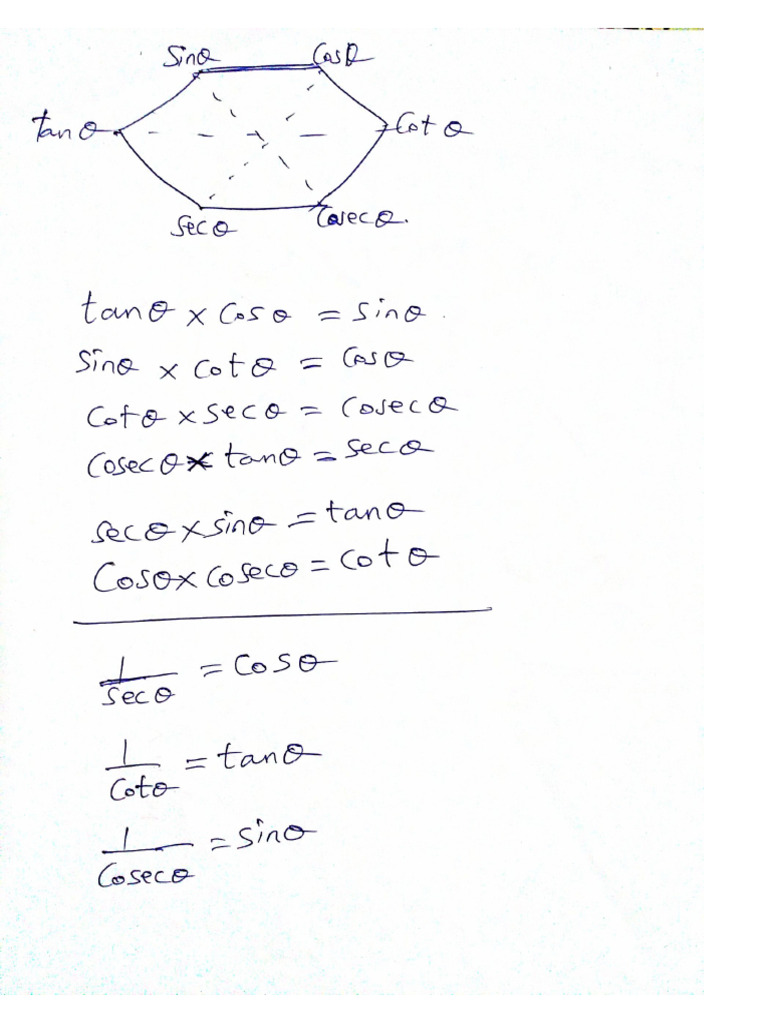 Sinθ Cosθ
tanθ Cotθ
Secθ Cosecθ.
tanθ × Cosθ = Sinθ.
Sinθ × Cotθ = Cosθ
Cotθ × Secθ = Cosecθ
Cosecθ × tanθ = Secθ
Secθ × Sinθ = tanθ
Cosθ × Cosecθ = Cotθ
1/Secθ = Cosθ
1/Cotθ = tanθ
1/Cosecθ = Sinθ